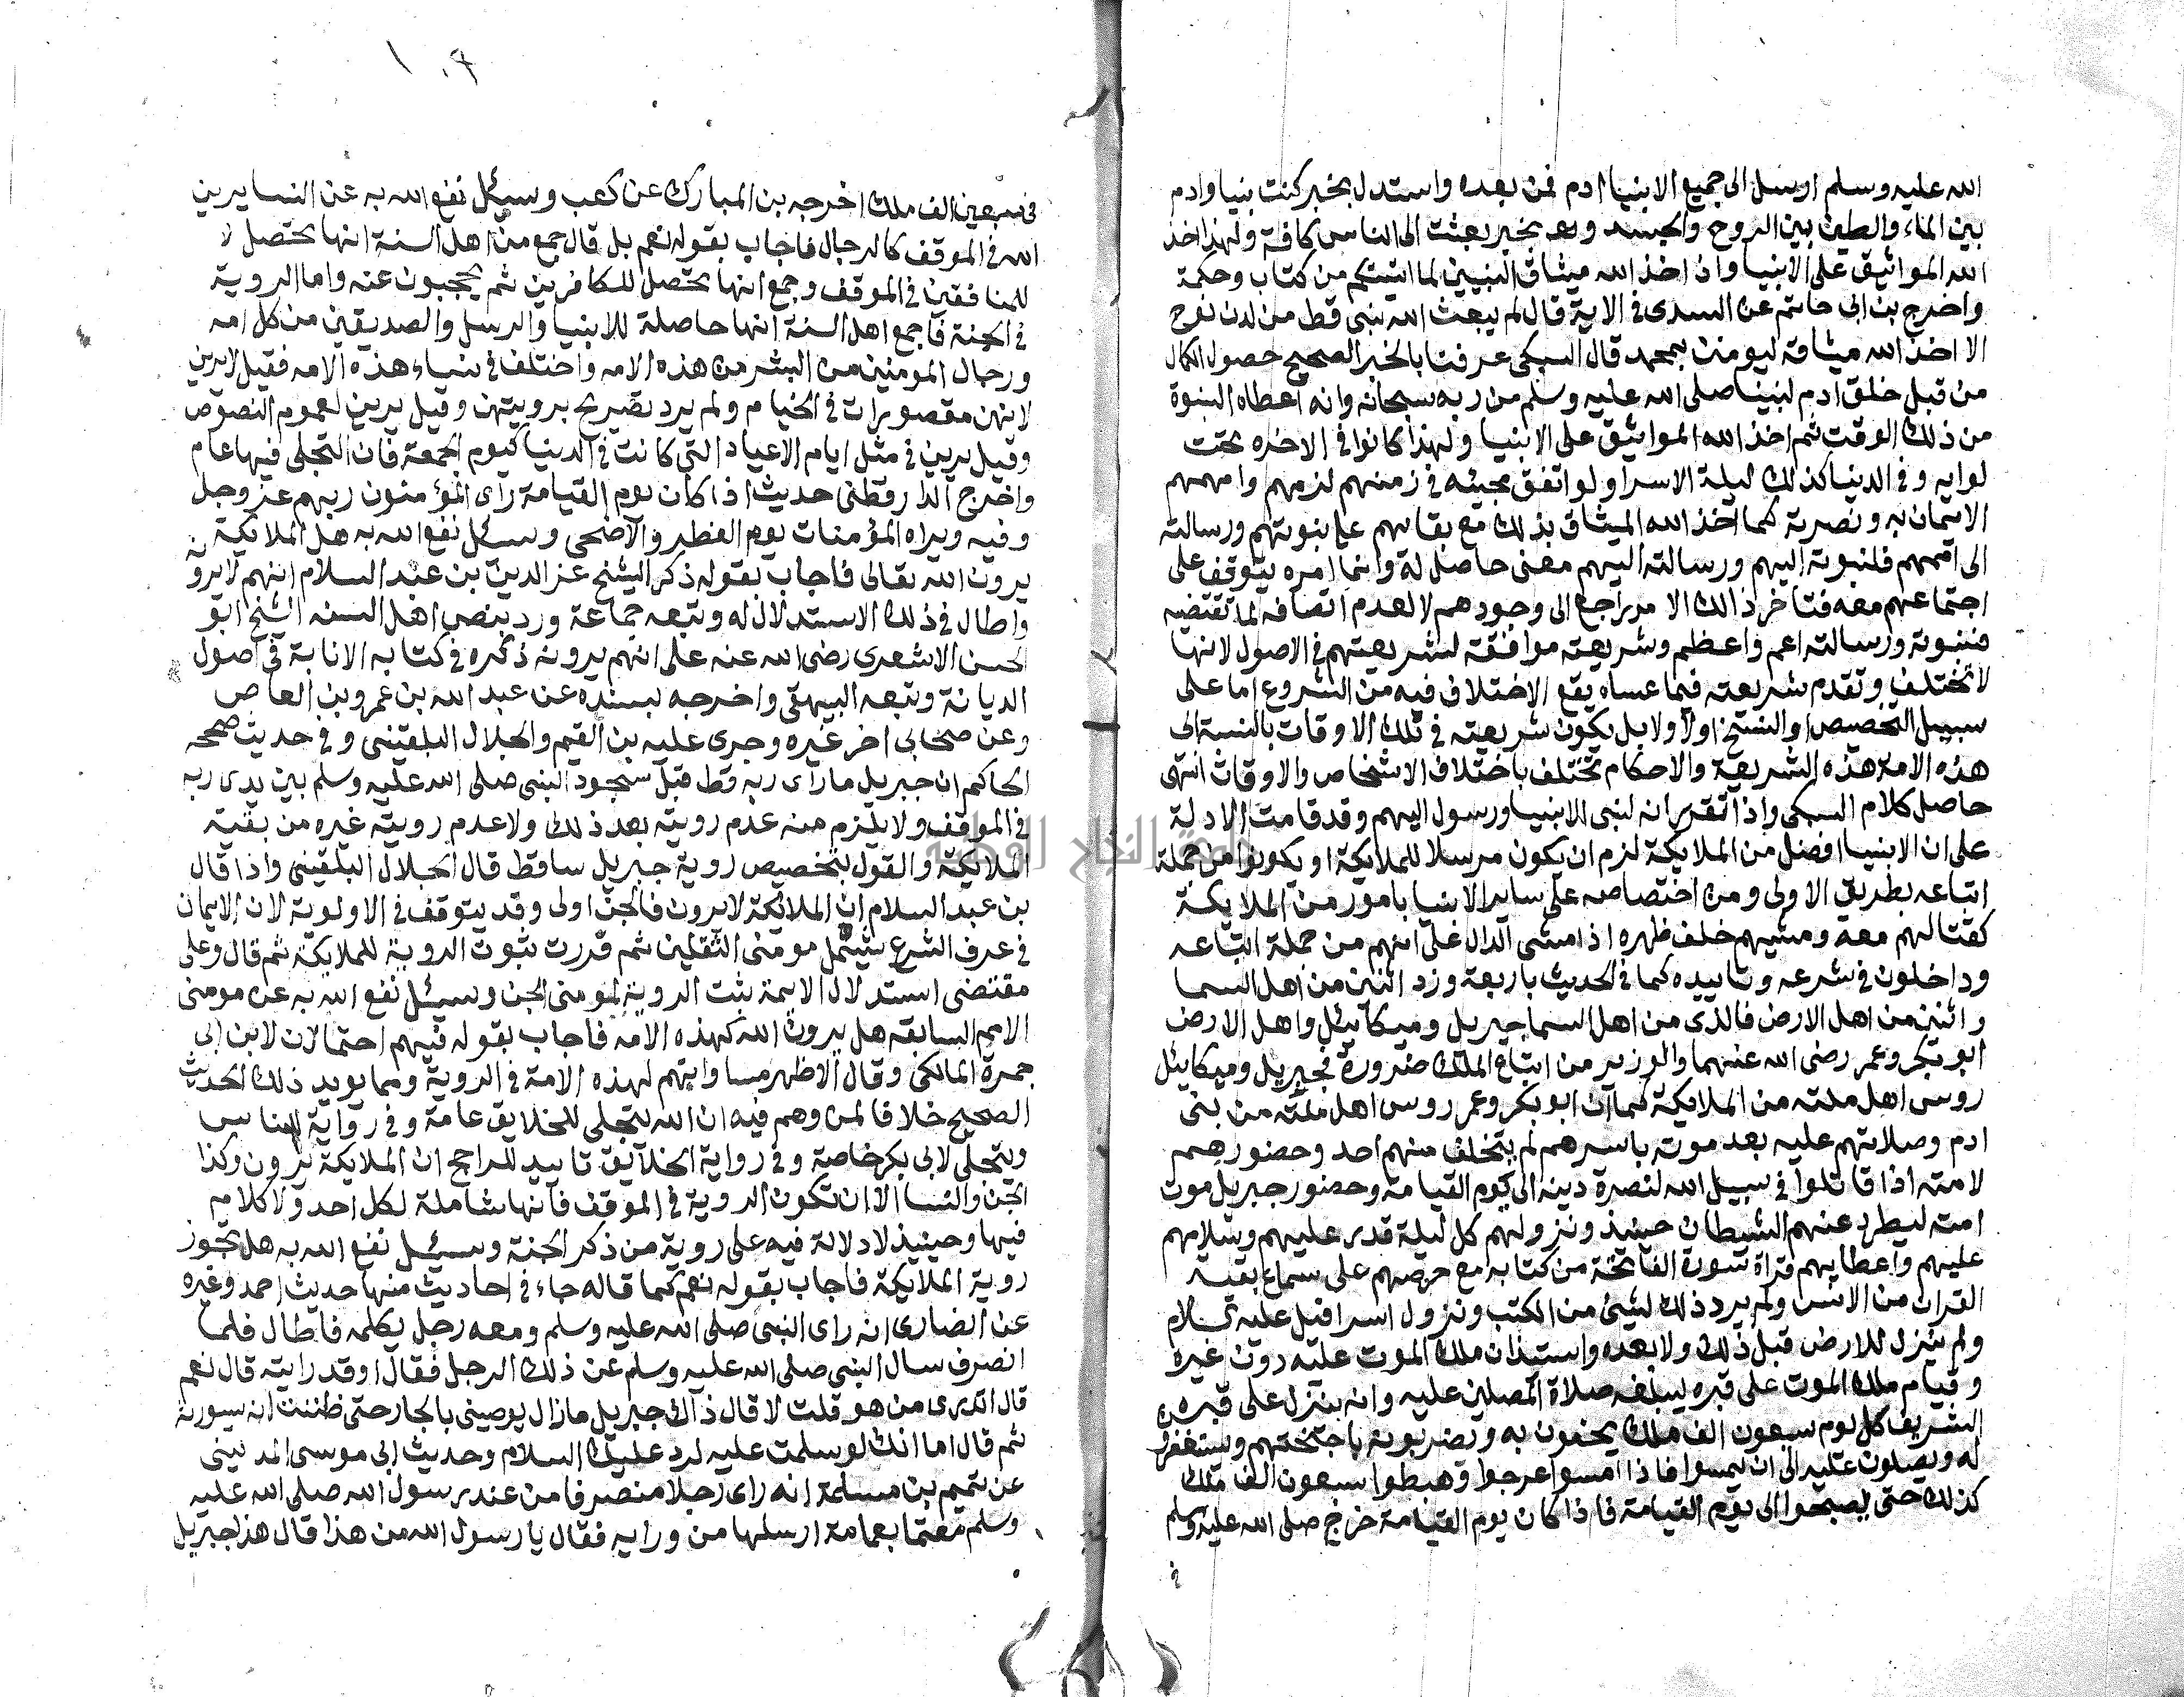 الله عليه وسلم ارسل الى جميع الانبيا ادم فمن بعده واستدل بخبر كنت نبيا وادم
بين الماء والطين بين الروح والجسد وبخبر بعثت الى الناس كافة ولهذا اخذ
الله المواثيق على الانبيا واذ اخذ الله ميثاق النبيين لما اتيتكم من كتاب وحكمة
واخرج بن ابى حاتم عن السدى فى الاية قال لم يبعث الله نبى قط من لدن نوح
الا اخذ الله ميثاقه ليومنن بمحمد قال السبكى عرفنا بالخبر الصحيح حصول الكمال
من قبل خلق ادم لنبينا صلى الله عليه وسلم من ربه سبحانه وانه اعطاه النبوة
من ذلك الوقت ثم اخذ الله المواثيق على الانبيا ولهذا كانوا فى الاخره تحت
لوايه وفى الدنيا كذلك ليلة الاسرا ولو اتفق مجيئه فى زمنهم لزمهم واممهم
الايمان به ونصرته كما اخذ الله الميثاق بذلك مع بقايهم على نبوتهم ورسالته
الى اممهم فلنبوته اليهم ورسالته اليهم معنى حاصل له وانما امره يتوقف على
اجتماعهم معه فتاخر ذالك الامر راجع الى وجودهم لا لعدم اتصافه لما تقتضيه
فنبوته ورسالته اعم واعظم وشريعته موافقة لشريعتهم فى الاصول لانها
لا تختلف وتقدم شريعته فيما عساه يقع الاختلاف فيه من الشروع اما على
سبيل التخصيص او النسخ اولا ولا بل يكون شريعته فى تلك الاوقات بالنسبة الى
هذه الامة هذه الشريعة والاحكام تختلف باختلاف الاشخاص والاوقات انتهى
حاصل كلام السبكى واذا تقرر انه لنبى الانبيا ورسول اليهم وقد قامت الادلة
على ان الانبيا افضل من الملايكة لزم ان يكون مرسلا للملايكة او يكونوا من جملة
اتباعه بطريق الاولى ومن اختصاصه على ساير الانبيا بامور من الملايكة
كقتالهم معه ومشيهم خلف ظهره اذا مشى الدال على انهم من جملة اتباعه
وداخلون فى شرعه وتاييده كما فى الحديث باربعة وزرا اثنين من اهل السما
واثنين من اهل الارض فالذى من اهل السما جبريل وميكائيل واهل الارض
ابو بكر وعمر رضى الله عنهما والوزير من اتباع الملك ضرورة فجبريل وميكائيل
روس اهل ملته من الملايكة كما ان ابو بكر وعمر روس اهل ملته من بنى
ادم وصلاتهم عليه بعد موته باسرهم لم يتخلف منهم احد وحضورهم
لامته اذا قاتلوا فى سبيل الله لنصرة دينه الى يوم القيامة وحضور جبريل موت
امته ليطرد عنهم الشيطان حينيذ ونزولهم كل ليلة قدر عليهم وسلامهم
عليهم واعطايهم قراة سورة الفاتحة من كتابه مع حرصهم على سماع بقية
القران من الانس ولم يرد ذلك لشئ من الكتب ونزول اسرافيل عليه
ولم ينزل للارض قبل ذلك ولا بعده واستيذان ملك الموت عليه دون غيره
وقيام ملك الموت على قبره ليبلغه صلاة المصلين عليه وانه ينزل على قبره
الشريف كل يوم سبعون الف ملك يحفون به ويضربونه باجنحتهم ويستغفرون
له ويصلون عليه الى ان يمسوا فاذا امسوا عرجوا وهبطوا سبعون الف ملك
كذلك حتى يصبحوا الى يوم القيامة فاذا كان يوم القيامة خرج صلى الله عليه وسلم
فى
فى سبعين الف ملك اخرجه بن المبارك عن كعب وسيئل نفع الله به عن النسا يرين
الله فى الموقف كالرجال فاجاب بقوله نعم بل قال جمع من اهل السنة انها تحصل لا
للمنافقين فى الموقف وجمع انها تحصل للكافرين ثم يحجبون عنه واما الروية
فى الجنة فاجمع اهل السنة انها حاصلة للانبيا والرسل والصديقين من كل امه
ورجال المومنين من البشر من هذه الامه واختلف فى نساء هذه الامه فقيل لا يرين
لانهن مقصورات فى الخيام ولم يرد تصريح برويتهن وقيل يرين لعموم النصوص
وقيل يرين فى مثل ايام الاعياد التى كانت فى الدنيا كيوم الجمعة فان التجلى فيها عام
واخرج الدارقطنى حديث اذا كان يوم القيامة راى المؤمنون ربهم عز وجل
وفيه ويراه المؤمنات يوم الفطر والاضحى وسئل نفع الله به هل الملايكة
يرون الله تعالى فاجاب بقوله ذكر الشيخ عز الدين بن عبد السلام انهم لا يرونه
واطال فى ذلك الاستدلال له وتبعه جماعة ورد بنص اهل السنه الشيخ ابو
الحسن الاشعرى رضى الله عنه على انهم يرونه ذكره فى كتابه الابانة فى اصول
الديانة وتبعه البيهقى واخرجه بسنده عن عبد الله بن عمرو بن العاص
وعن صحابى اخر غيره وجرى عليه بن القيم والجلال البلقينى وفى حديث صححه
الحاكم ان جبريل ما راى ربه قط قبل سجود النبى صلى الله عليه وسلم بين يدى ربه
فى الموقف ولا يلزم منه عدم رويته بعد ذلك ولا عدم روية غيره من بقية
الملايكة والقول بتخصيص روية جبريل ساقط قال الجلال البلقينى واذا قال
بن عبد السلام ان الملائكة لا يرون فالجن اولى وقد يتوقف فى الاولوية لان الايمان
فى عرف الشرع يشمل مومنى الثقلين ثم قررت ثبوت الروية للملايكة ثم قال وعلى
مقتضى استدلال الايمة ثبت الروية لمومنى الجن وسيئل نفع الله به عن مومنى
الامم السابقه هل يرون الله كهذه الامه فاجاب بقوله فيهم احتمالان لابن ابى
جمرة المالكى وقال الاظهر مساواتهم لهذه الامة فى الروية ومما يويد ذلك الحديث
الصحيح خلافا لمن وهم فيه ان الله ليتجلى للخلايق عامة وفى رواية للناس
ويتجلى لابى بكر خاصة وفى رواية الخلايق تاييد للراجح ان الملايكة يرون وكذا
الجن والنسا الا ان تكون الروية فى الموقف فانها شاملة لكل احد ولا كلام
فيها وحينيذ لا دلالة فيه على روية من ذكر الجنة وسيئل نفع الله به هل تجوز
روية الملايكة فاجاب بقوله نعم كما قاله جاء فى احاديث منها حديث احمد وغيره
عن انصارى انه راى النبى صلى الله عليه وسلم ومعه رجل يكلمه فاطال فلما
انصرف سال النبى صلى الله عليه وسلم عن ذلك الرجل فقال او قد رايته قال نعم
قال اتدرى من هو قلت لا قال ذاك جبريل مازال يوصينى بالجار حتى ظننت انه سيورثه
ثم قال اما انك لو سلمت عليه لرد عليك السلام وحديث ابى موسى المدينى
عن تميم بن مسلمة انه راى رجلا منصرفا من عند رسول الله صلى الله عليه
وسلم معتما بعمامة ارسلها من ورايه فقال يا رسول الله من هذا قال هذا جبريل